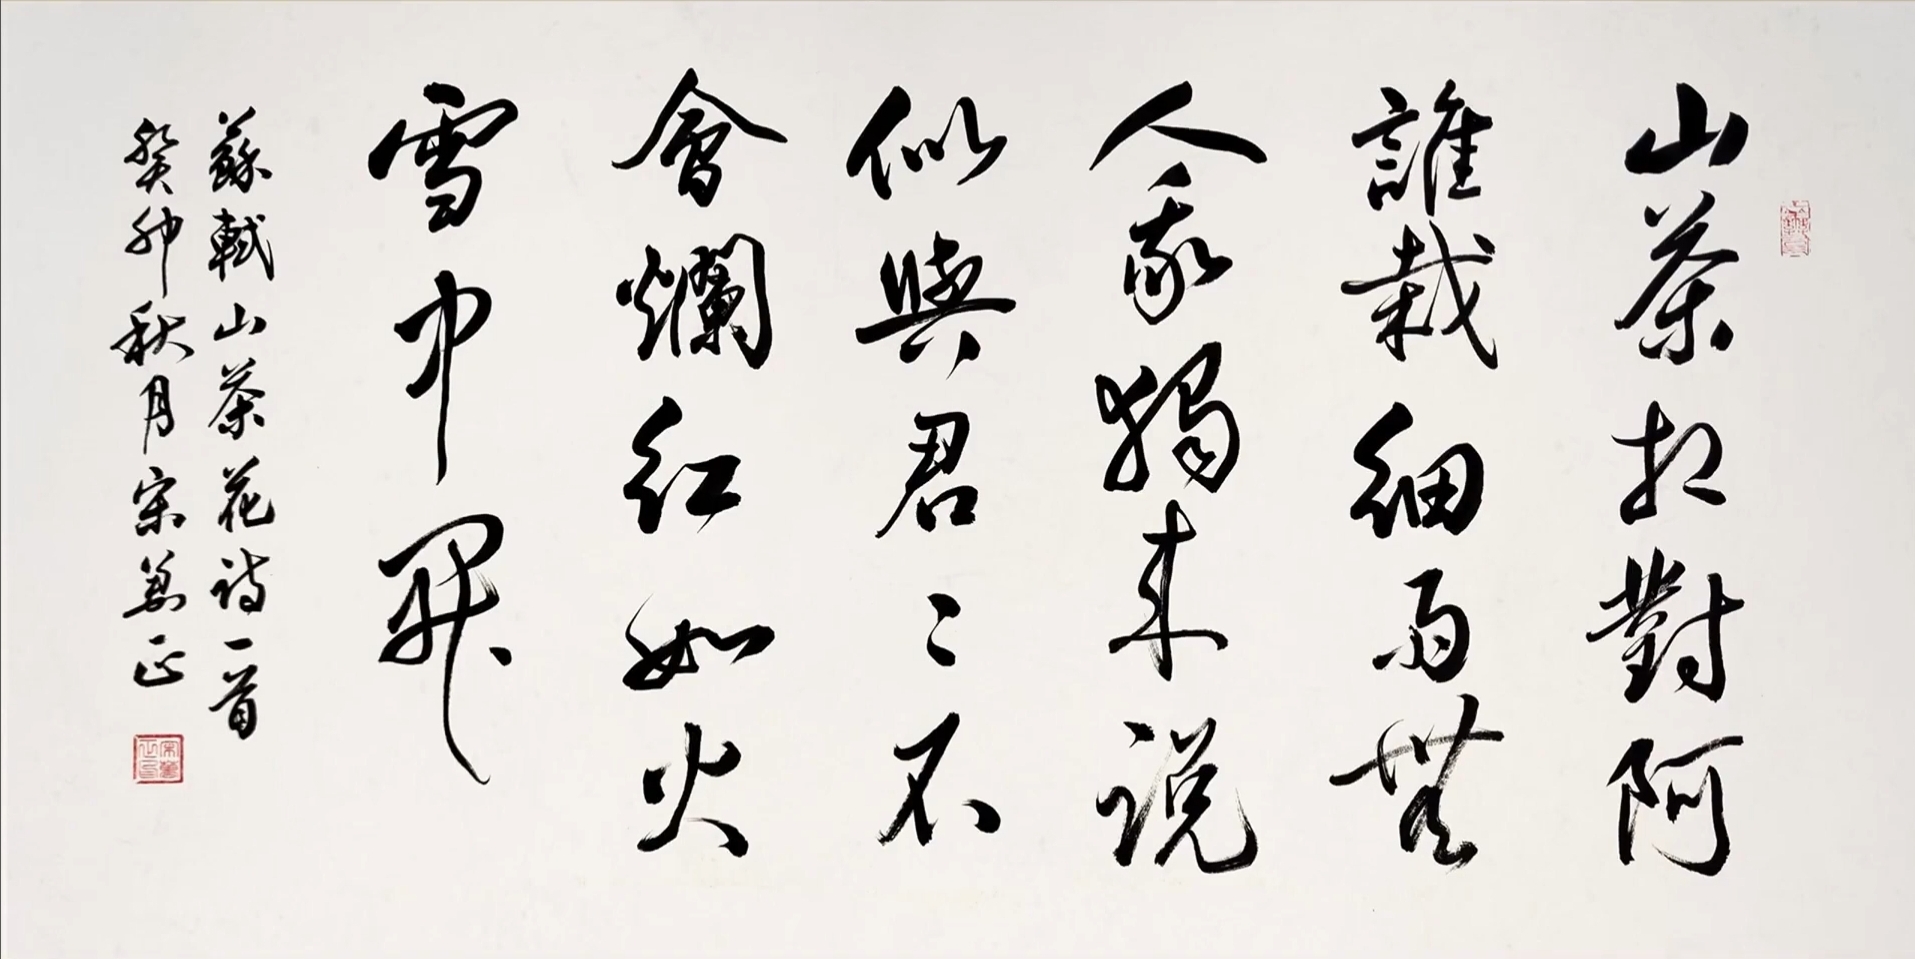 山茶相對阿
誰栽細雨無
人我獨来说
似與君々不
會爛紅如火
雪中開
蘇軾山茶花诗一首
癸卯秋月宋萬正